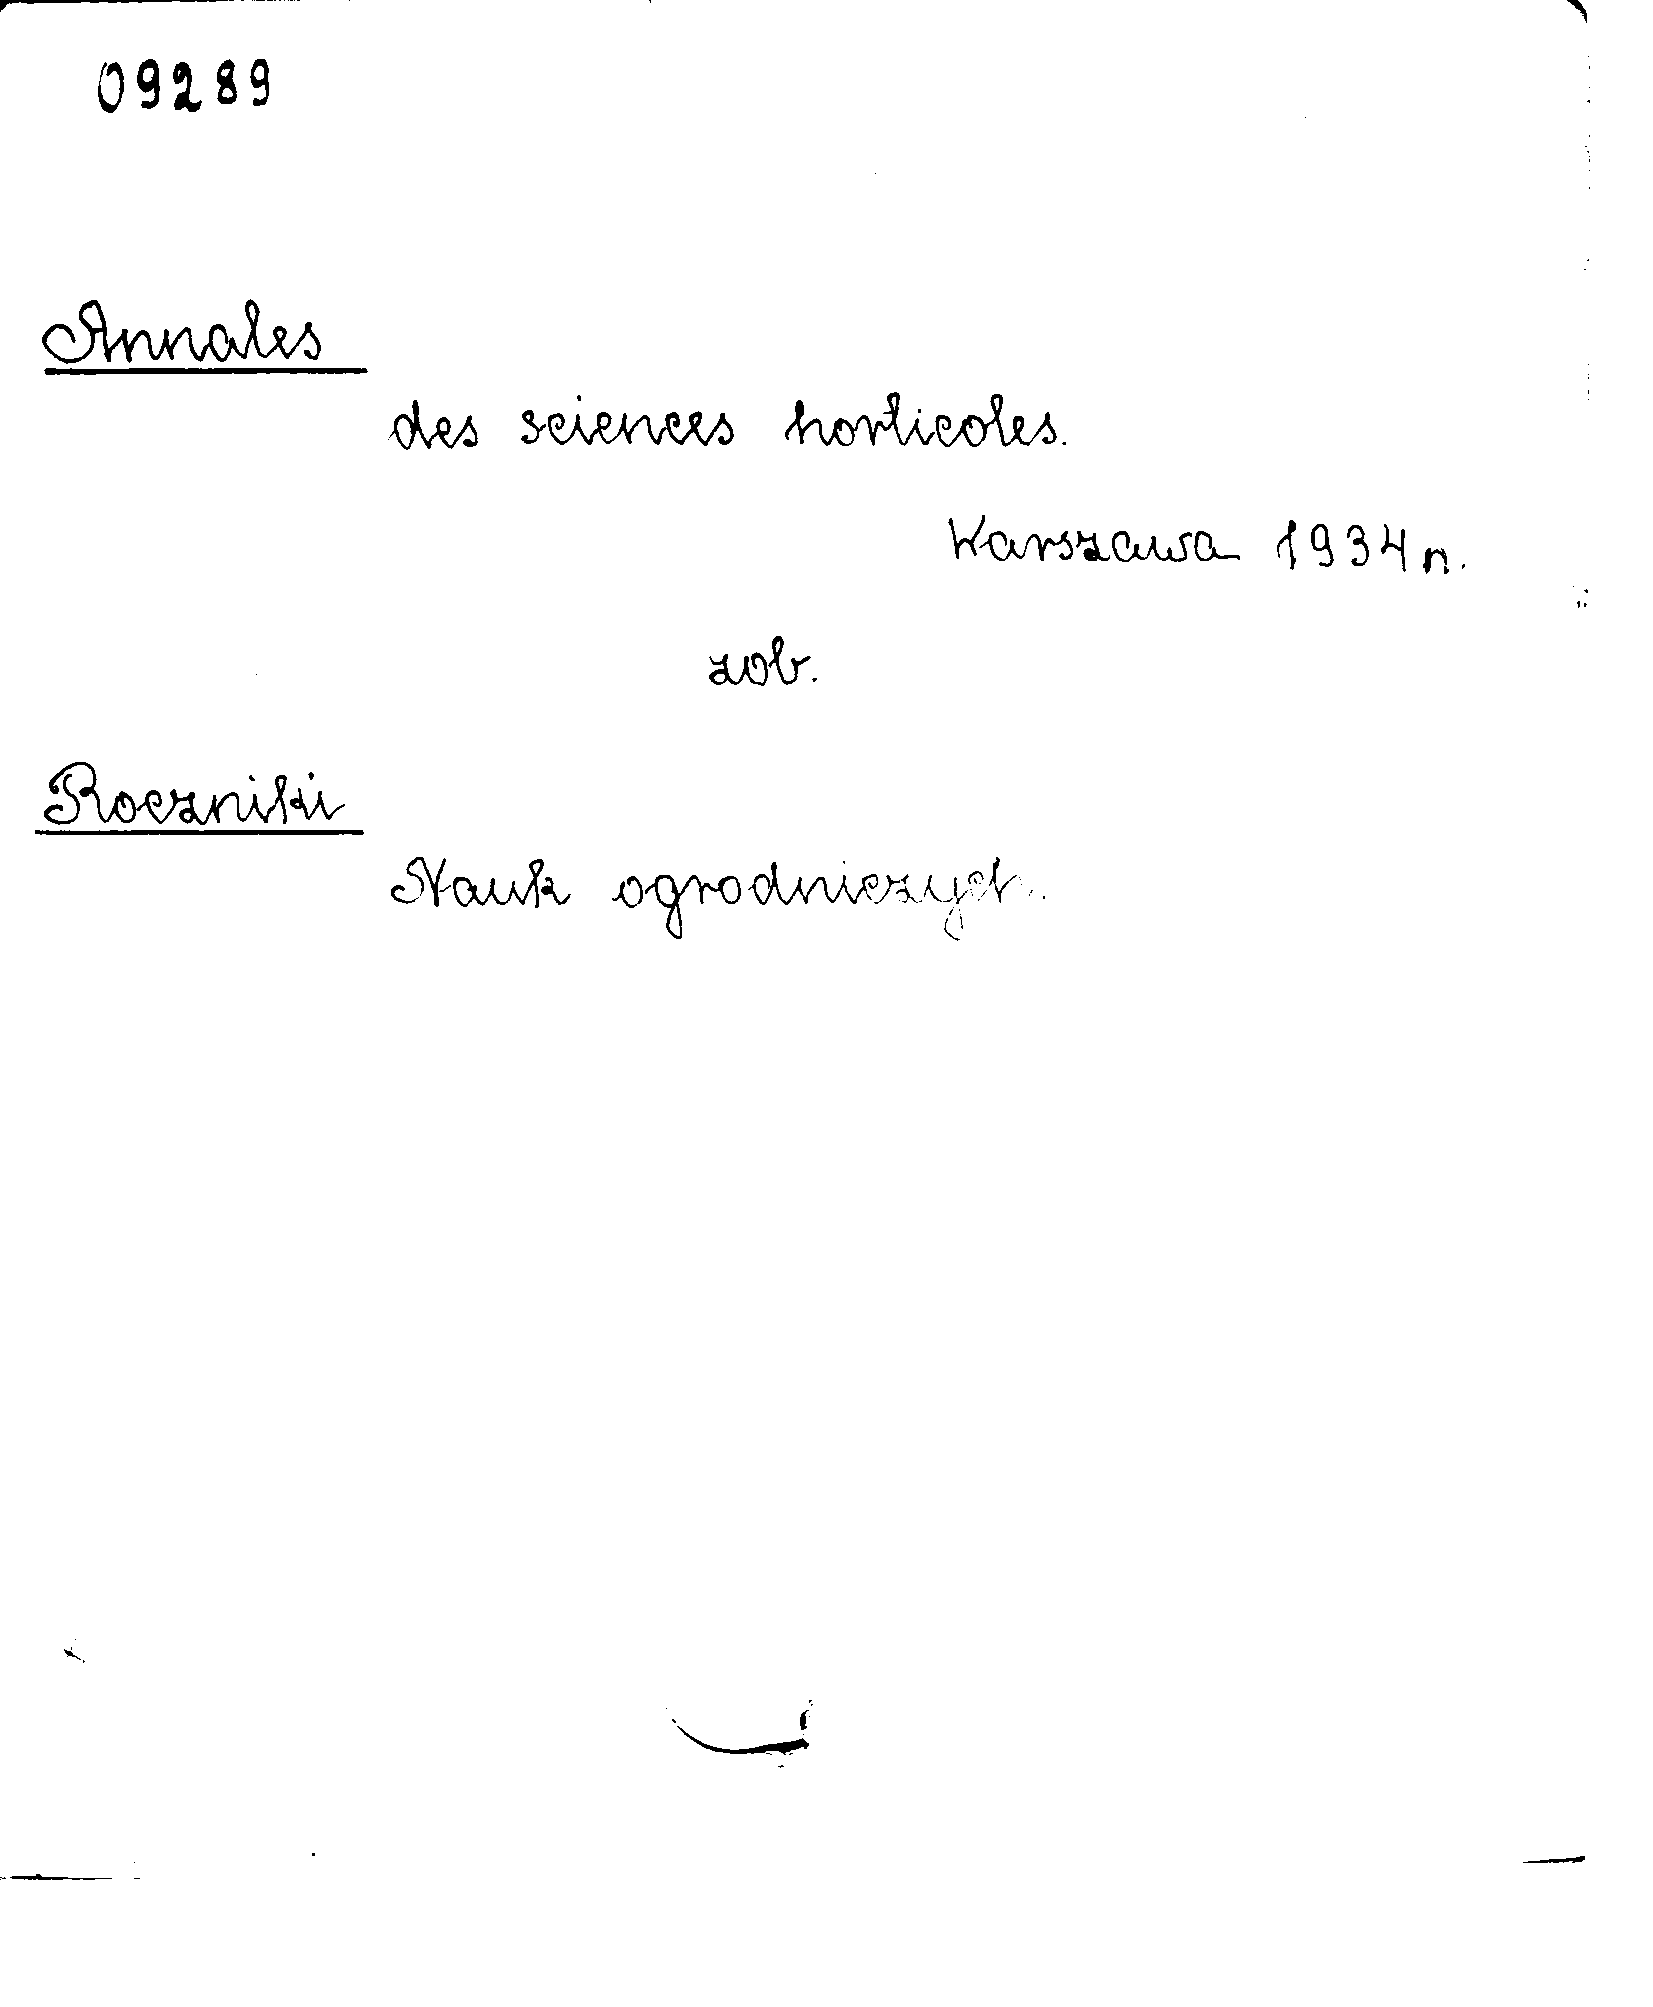 09289
Annales
des sciences horticoles.
Warszawa 1934 n.
zob.
Roczniki
Nauk ogrodniczych.